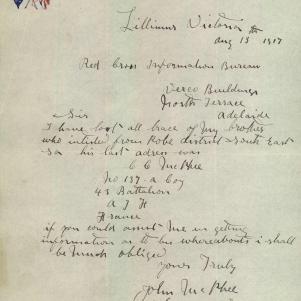 Lillimur Victoria
Aug 13 1917
Red Cross Information Bureau
Verco Buildings
North Terrace
Adelaide
Sir
I have lost all trace of my brother
who inlisted from Robe district South East
SA his last adress was
C C McPhee
No 137 A Coy
43 Battalion
A I F
France
if you could assist me in getting
information as to his whereabouts i shall
be much obliged
yours Truly
John McPhee